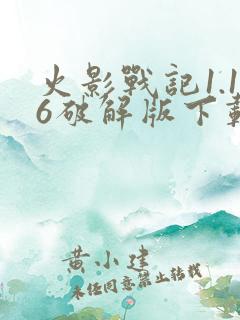 火影戰記1.1
6破解版下載
黄小建
未任同意禁止转载